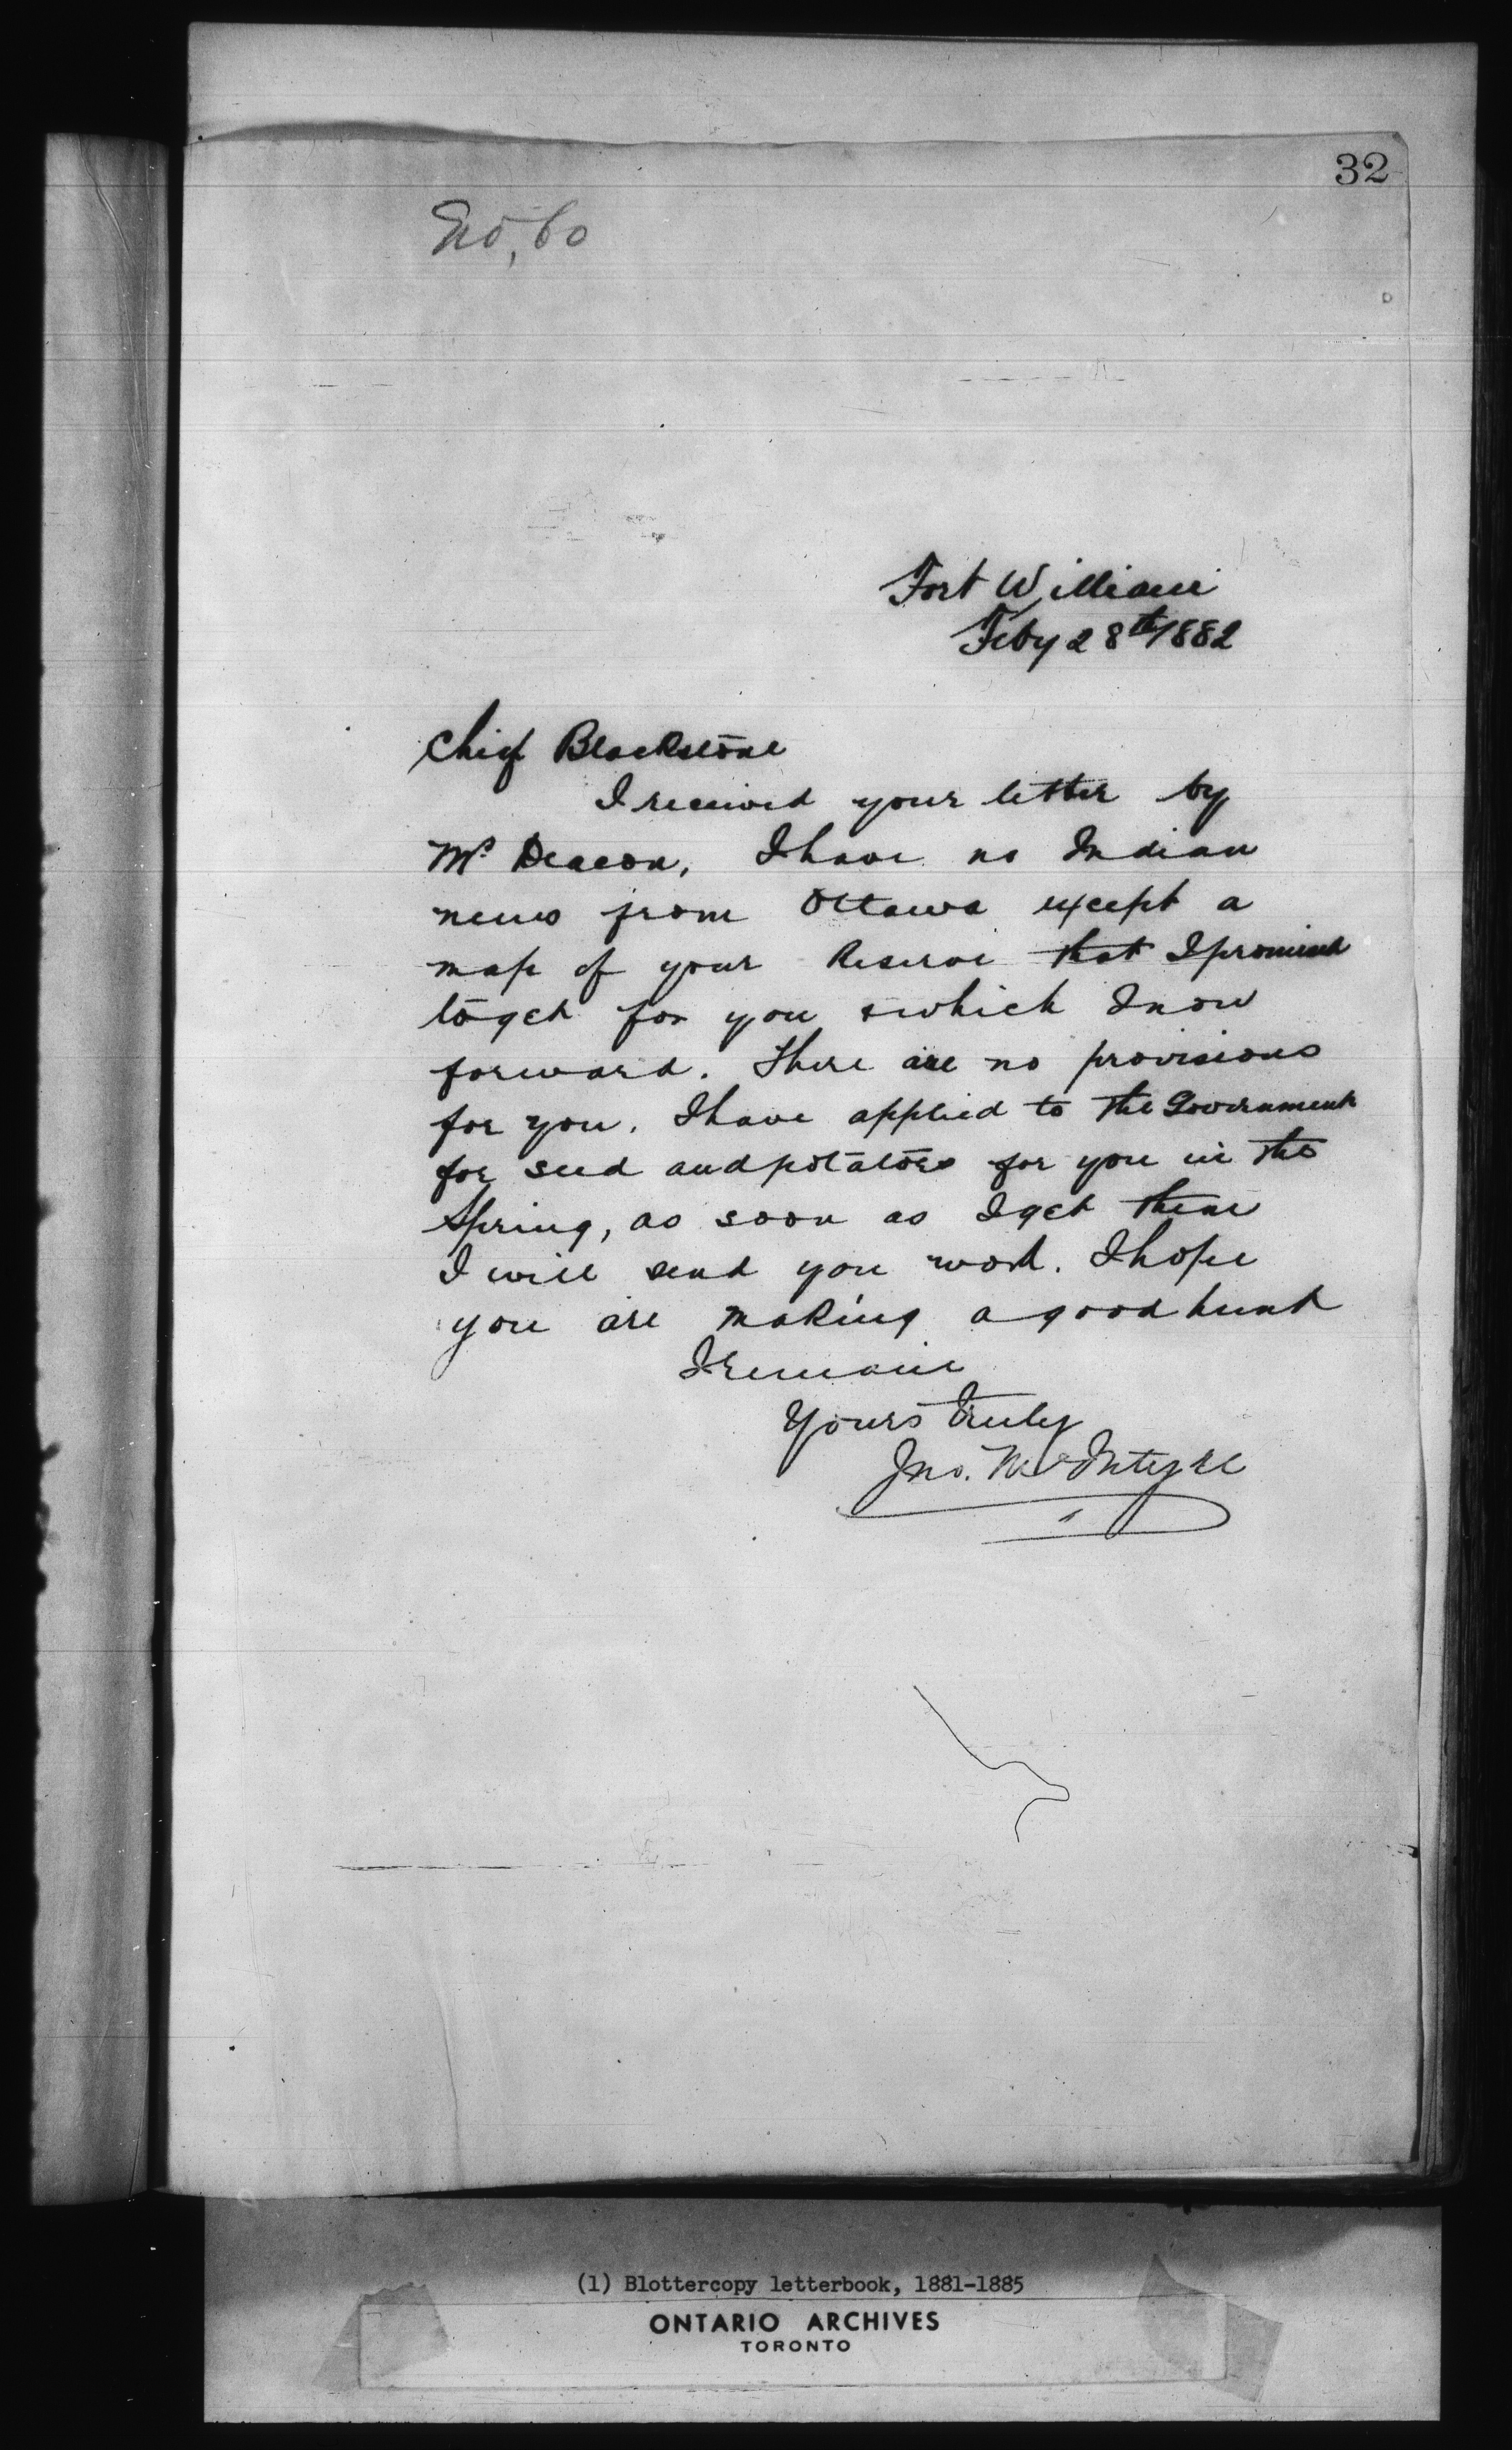 32
No, 60
Fort William
Feby 28th 1882
Chief Blackstone
I received your letter by
Mr Deacon, I have no Indian
news from Ottawa except a
map of your Reserve that I promised
to get for you & which I now
forward. There are no provisions
for you. I have applied to the Government
for seed and potatoes for you in the
Spring, as soon as I get them
I will send you word. I hope
you are making a good hunt
I remain
Yours truly
Jno. McIntyre
(1) Blottercopy letterbook, 1881-1885
ONTARIO ARCHIVES
TORONTO